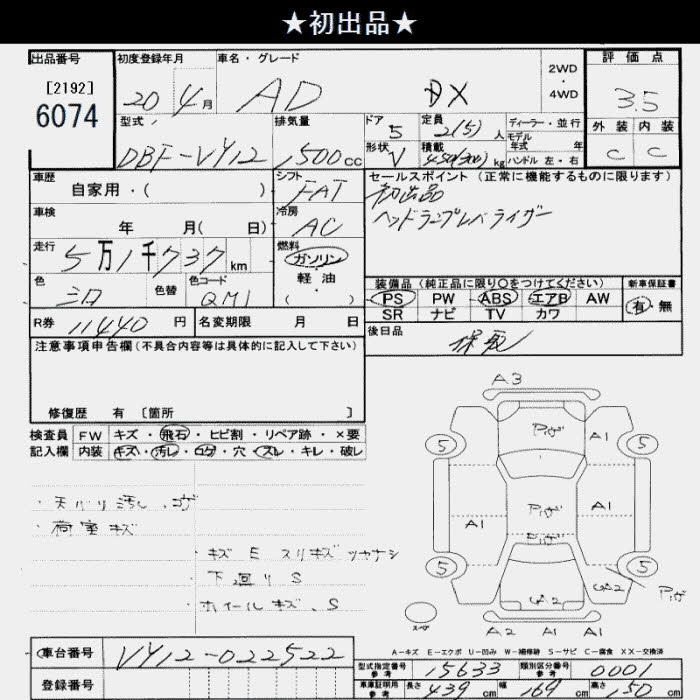 ★初出品★
出品番号 初度登録年月 車名・グレード 2WD・4WD 評価点
[2192]
6074
20 4月 AD DX 3.5
型式 排気量 ドア 定員 ディーラー・並行 外装 内装
DBF-VY12 1500cc 5 2(5)人 モデル年式 年 C C
形状 V 積載 kg ハンドル 左・右
車歴 シフト セールスポイント (正常に機能するものに限ります)
自家用・( ) FAT 初出品
車検 冷房 ヘッドランプレベライザー
年 月( 日) AC
走行 燃料
5万1千737km ガソリン
軽・油
( )
色 色替 色コード 装備品(純正品に限り○をつけてください) 新車保証書
シロ QM1 PS PW ABS エアB AW 有・無
SR ナビ TV カワ
R券 11440円 名変期限 月 日 後日品
注意事項申告欄(不具合内容等は具体的に記入して下さい) 保 取
修復歴 有 [箇所 ]
検査員 FW キズ・飛石・ヒビ割・リペア跡・×要
記入欄 内装 キズ・汚レ・コゲ・穴・スレ・キレ・破レ
A3
P.トビ A1
5 5
A1 P.トビ A1
5 5
UA2 UA2
スペア A2 A1 A1
・天バリ汚レ
・荷室キズ
・キズ E スリキズ
・下廻り S
・ホイールキズ、S
A-キズ E-エクボ U-凹み W-補修跡 S-サビ C-腐食 XX-交換済
車台番号 VY12-022522
登録番号
型式指定番号 参考 15633 類別区分番号 参考 0001
車庫証明用 参考 長さ 439cm 幅 169cm 高さ 50cm